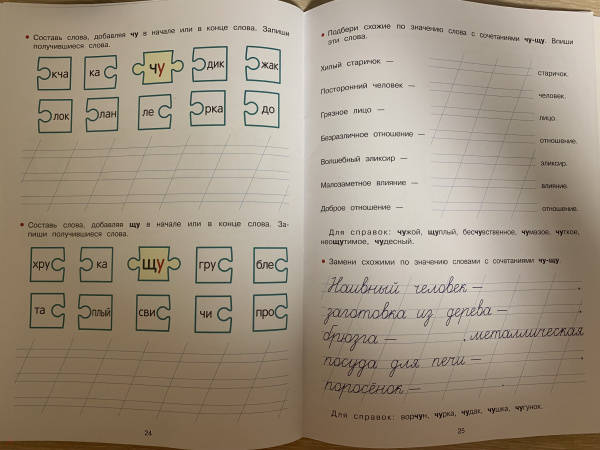 • Составь слова, добавляя чу в начале или в конце слова. Запиши
получившиеся слова.
кча ка чу дик жак
лок лан ле рка до
• Составь слова, добавляя щу в начале или в конце слова. За-
пиши получившиеся слова.
хру ка щу гру бле
та плый сви чи про
24
• Подбери схожие по значению слова с сочетаниями чу-щу. Впиши
эти слова.
Хилый старичок — старичок.
Посторонний человек — человек.
Грязное лицо — лицо.
Безразличное отношение — отношение.
Волшебный эликсир — эликсир.
Малозаметное влияние — влияние.
Доброе отношение — отношение.
Для справок: чужой, щуплый, бесчувственное, чумазое, чуткое,
неощутимое, чудесный.
• Замени схожими по значению словами с сочетаниями чу-щу.
Наивный человек — .
заготовка из дерева — ,
брюзга — , металлическая
посуда для печи — ,
поросёнок — .
Для справок: ворчун, чурка, чудак, чушка, чугунок.
25